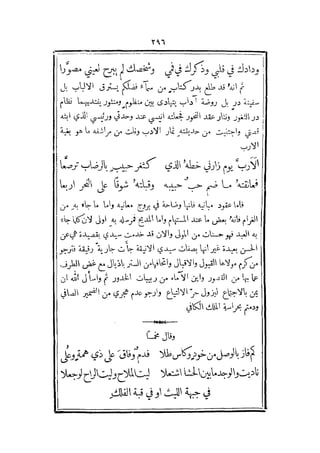 ٢٩٦
ودادك في قلبي وذكرك في فمي وشخصك لم يبرح لعيني مصوَّرا
ثم انه قد طلع بدر كتاب من سماء فضلكم يسترق الالباب بل
سفينة در بل روضة آداب يتهادى بين منظوم ومنثور يفتديهما نظام
در الثغور ونثار عقد النحور فجعلته انيسي عند وحدتي ورئيسي الذي ابثه
قدمي واجتنيت من حديقته ثمار الادب ونلت من مراشفه ما هو بغية
الارب
الأربُ يوم زارني خطهُ الذي كثغر حبيبٍ بالرضاب ترصّعا
فعانقتهُ ما ضم حبٌّ حبيبه وقبلتهُ شوقًا على النحر اربعا
فاما عقود مبانيه فانها وضاحة في بروج معانيه واما ما جاء به من
الغرام فانهُ بعض ما عند المستهام واما المديح فمرسله به اولى لان كلما جاء
به العبد فهو حسنات من المولى والان قد خدمت سيدي بقصيدة هي عن
الحسن بعيدة غير انها بصفات سيدي الانيقة جأت جارية رقيقة فنرجو
من كرم مولاها القبول والاقبال واتحافها من الستر باذيال مع غض الطرف
عما بها من القصور واين الآماء من ربيبات الخدور ثم واسأل الله ان
يمن بالاجتماع ليزول حرّ الالتياع وارجو عدم هجري من الضمير الصافي
ودمتم بحراسة الملك الكافي
وقال مخمسًا
كم فاز بالوصل من خودٍ وكاس طلا فدمٌ وفاق على ذي همة وعُلى
ناديت والوجد ما بين الحشا اشتعلا ليت الملاح وليت الراح لو جعلا
في جبهة الليث او في قبة الفلك